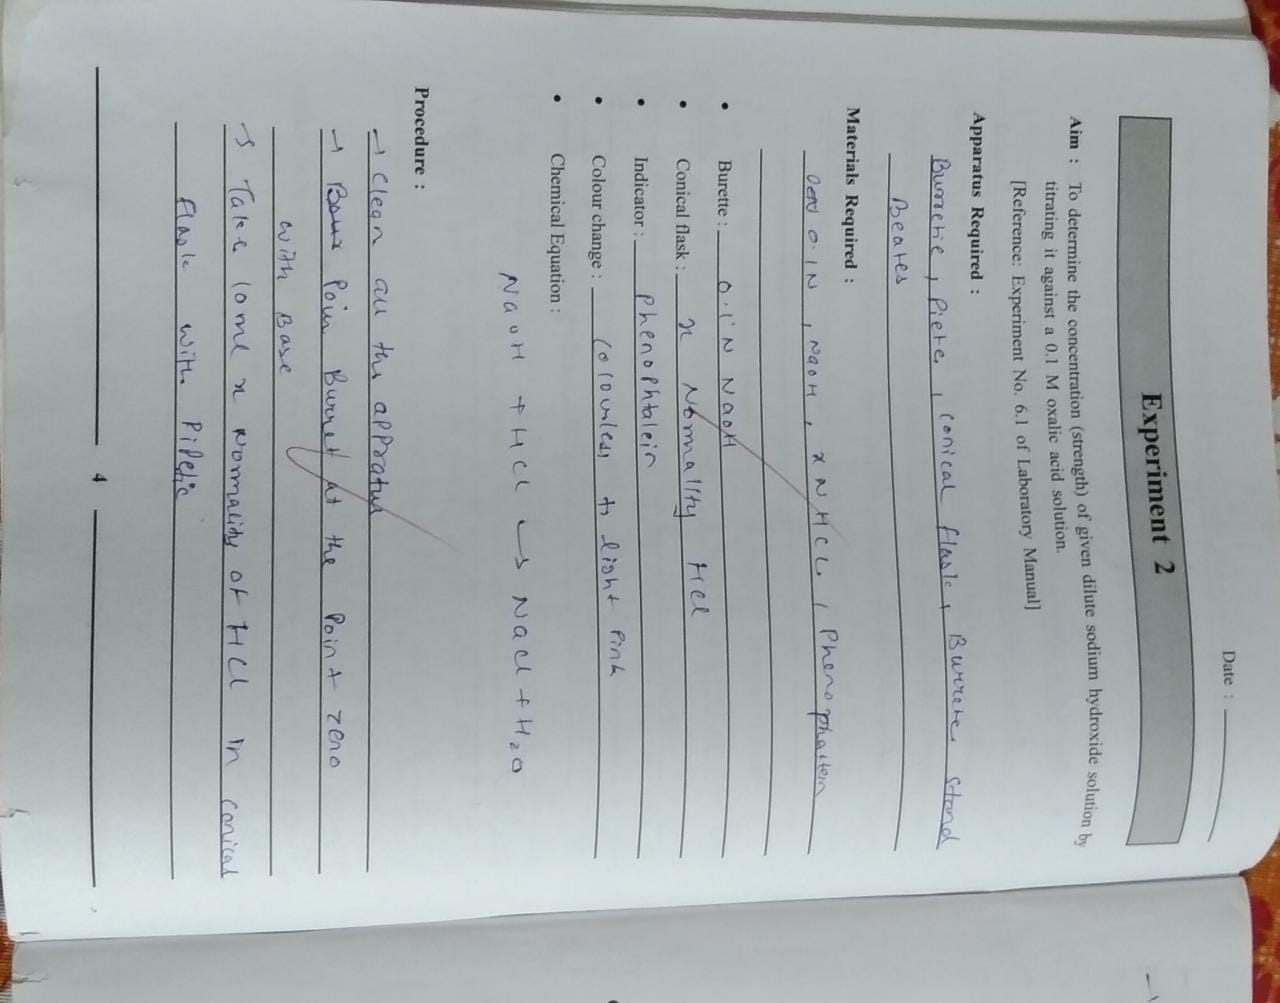 Date :
Experiment 2
Aim : To determine the concentration (strength) of given dilute sodium hydroxide solution by
titrating it against a 0.1 M oxalic acid solution.
[Reference: Experiment No. 6.1 of Laboratory Manual]
Apparatus Required :
Burretie, Piete, conical flask, Burrete stand
Beates
Materials Required :
0.1N, NaOH, x N HCL, Phenophaten
• Burette : 0.1'N NaOH
• Conical flask : x Normality HCl
• Indicator : Phenophtalein
• Colour change : Colourless to light Pink
• Chemical Equation :
NaOH + HCl → NaCl + H2O
Procedure :
→ Clean all the appratus
→ Burret at the Point zero
with Base
→ Take some x Normality of HCl in conical
flask with Pipetie
4